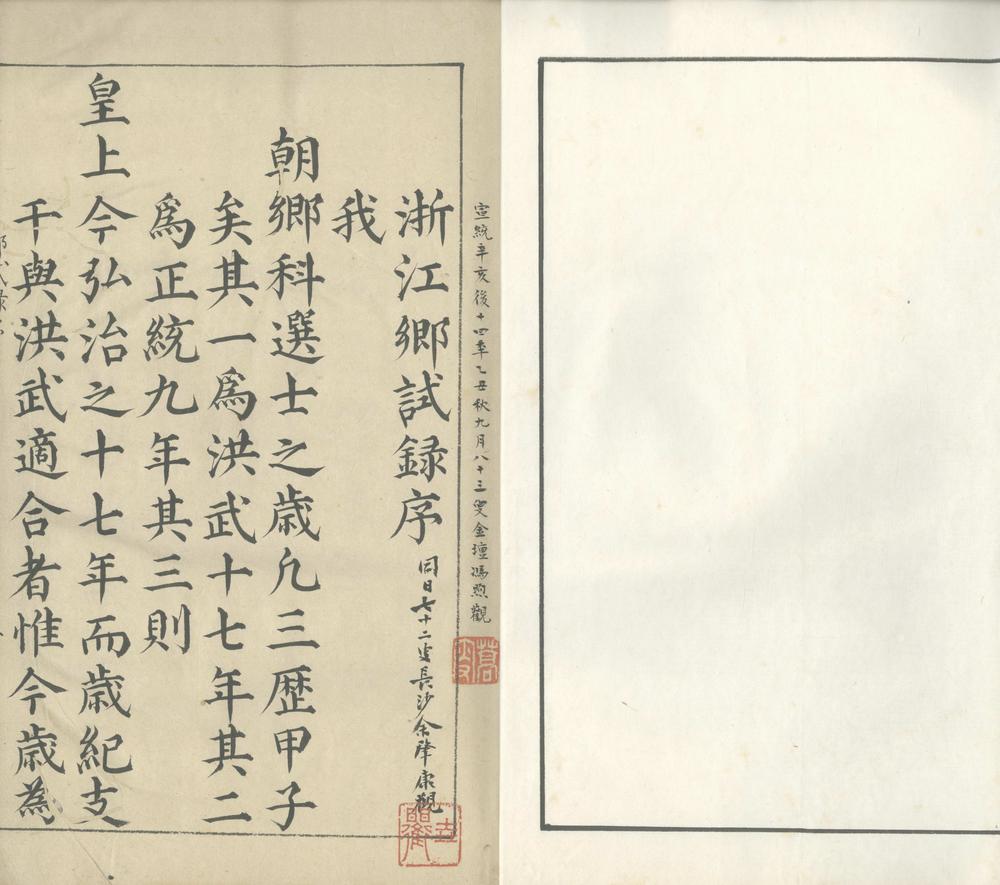 宣統辛亥後十四年乙丑秋九月八十三叟金壇馮煦觀
蒿叟
浙江鄉試録序
同日七十二叟長沙余肇康觀
我
朝鄉科選士之歳凢三歴甲子
矣其一爲洪武十七年其二
爲正統九年其三則
皇上今弘治之十七年而歳紀支
干與洪武適合者惟今歳為